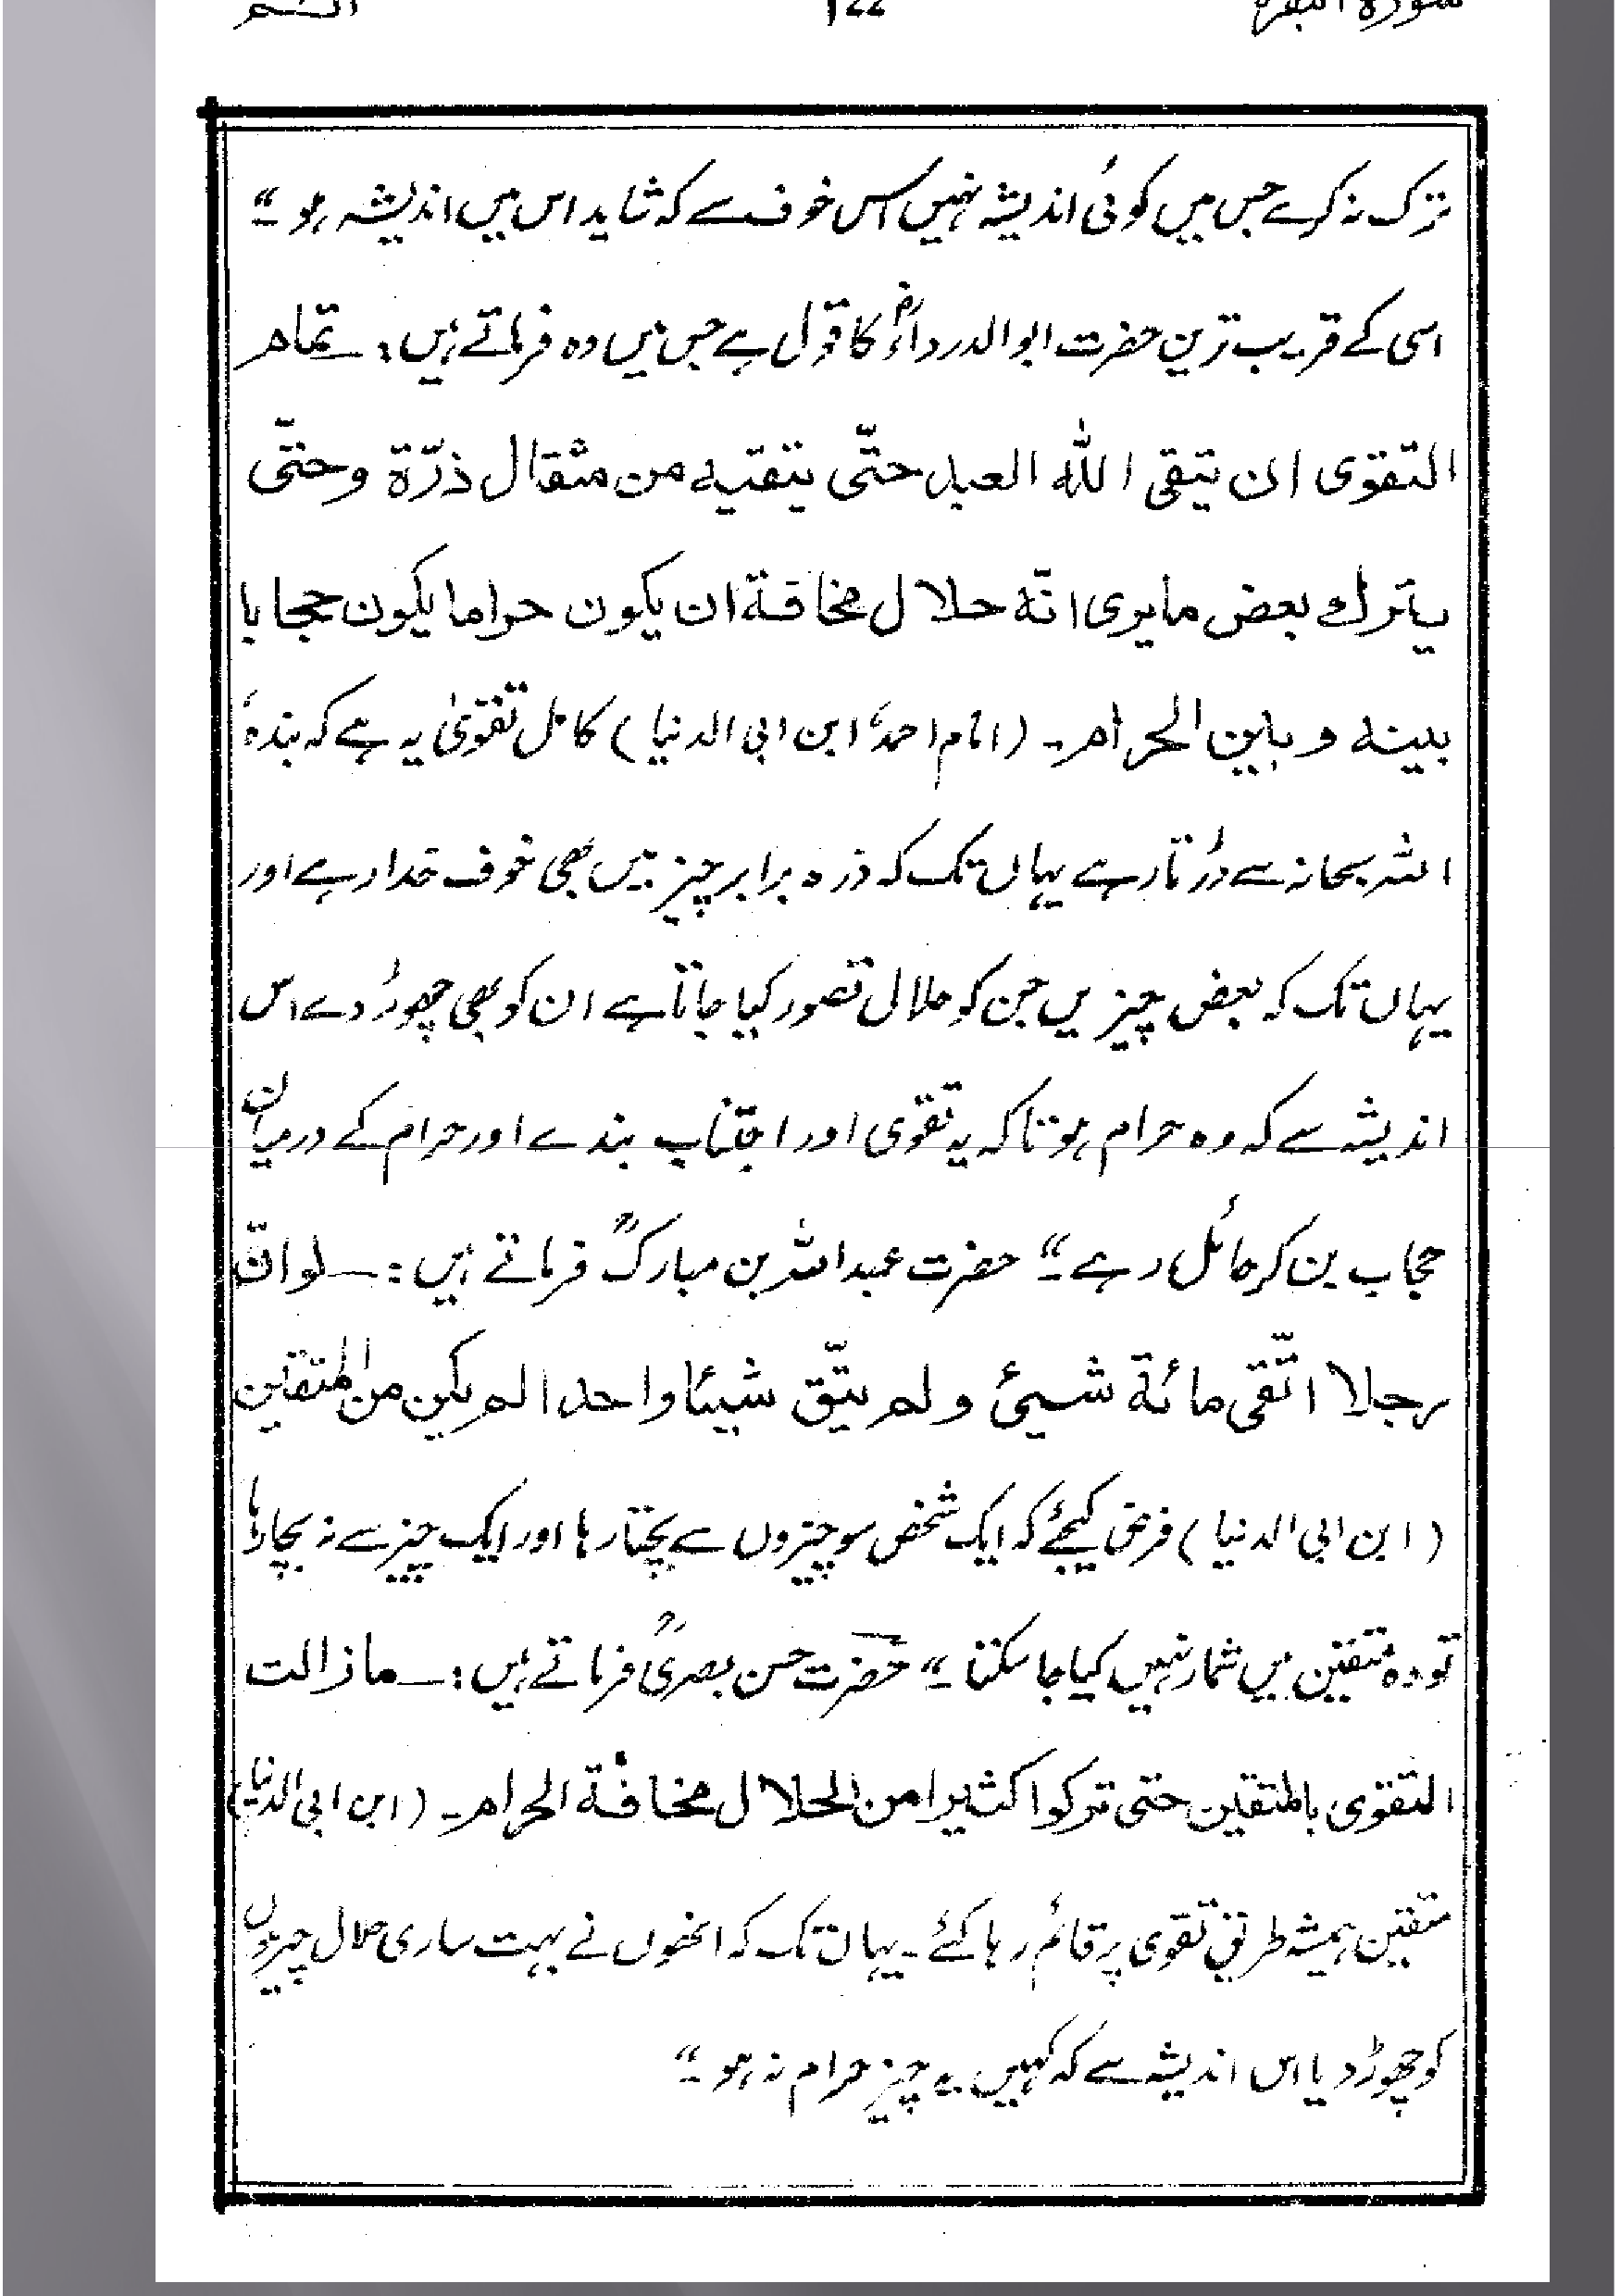 سورۃ البقرہ ۱۲۲ الٓـمّ
ترک نہ کرے جس میں کوئی اندیشہ نہیں اس خوف سے کہ شاید اس میں اندیشہ ہو۔“
اسی کے قریب ترین حضرت ابوالدرداءؓ کا قول ہے جس میں وہ فرماتے ہیں:۔ تمام
التقوى ان يتقى الله العبد حتّى يتقيه من مثقال ذرّة وحتّى
يترك بعض ما يرى انّه حلال مخافة ان يكون حراما يكون حجابا
بينه وبين الحرام۔ (امام احمدؒ ابن ابی الدنیا) کامل تقویٰ یہ ہے کہ بندہٗ
اللہ سبحانہ سے ڈرتا رہے یہاں تک کہ ذرہ برابر چیز میں بھی خوف خدا رہے اور
یہاں تک کہ بعض چیزیں جن کو حلال تصور کیا جاتا ہے ان کو بھی چھوڑ دے اس
اندیشہ سے کہ وہ حرام ہو تاکہ یہ تقوی اور اجتناب بندے اور حرام کے درمیان
حجاب بن کر حائل رہے۔“ حضرت عبداللہ بن مبارکؒ فرماتے ہیں:۔ لو انّ
رجلا اتّقى مائة شيئ ولم يتّق شيئا واحدا لم يكن من المتقين
(ابن ابی الدنیا) فرض کیجئے کہ ایک شخص سو چیزوں سے بچتا رہا اور ایک چیز سے نہ بچا رہا
تو وہ متقین میں شمار نہیں کیا جا سکتا۔“ حضرت حسن بصریؒ فرماتے ہیں:۔ مازالت
التقوى بالمتقين حتى تركوا كثيرا من الحلال مخافة الحرام۔ (ابن ابی الدنیا)
متقین ہمیشہ طریق تقوی پر قائم رہا کئے۔ یہاں تک کہ انھوں نے بہت ساری حلال چیزوں
کو چھوڑ دیا اس اندیشہ سے کہ کہیں یہ چیز حرام نہ ہو۔“